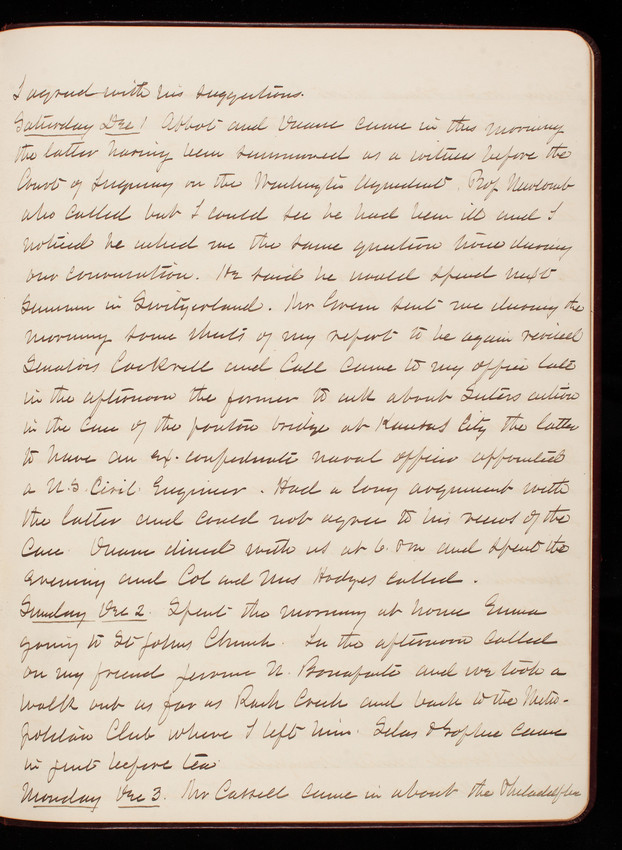 I agreed with his suggestions.
Saturday Dec 1 Abbot and Duane came in this morning
the latter having been summoned as a witness before the
Court of Inquiry on the Washington Aqueduct. Prof Newcomb
also called but I could see he had been ill and I
noticed he asked me the same question twice during
our conversation. He said he would spend next
Summer in Switzerland. Mr Green sent me during the
morning some sheets of my report to be again revised
Senators Cockrell and Call came to my office late
in the afternoon the former to ask about Suters action
in the case of the ponton bridge at Kansas City the latter
to have an ex-confederate naval officer appointed
a U.S. Civil Engineer. Had a long argument with
the latter and could not agree to his views of the
case. Duane dined with us at 6. and spent the
evening and Col and Mrs Hodges called.
Sunday Dec 2. Spent the morning at home Emma
going to St Johns Church. In the afternoon called
on my friend Jerome N. Bonaparte and we took a
walk out as far as Rock Creek and back to the Metro-
politan Club where I left him. Silas & Sophie came
in just before tea
Monday Dec 3. Mr Cassell came in about the Philadelphia